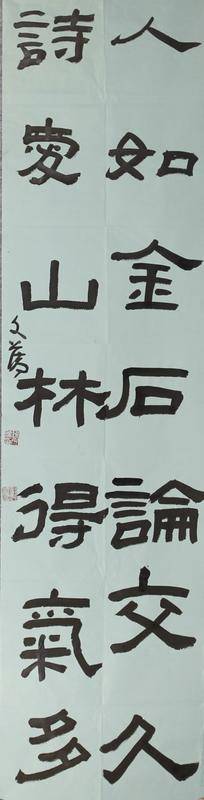 人如金石論交久
詩愛山林得氣多